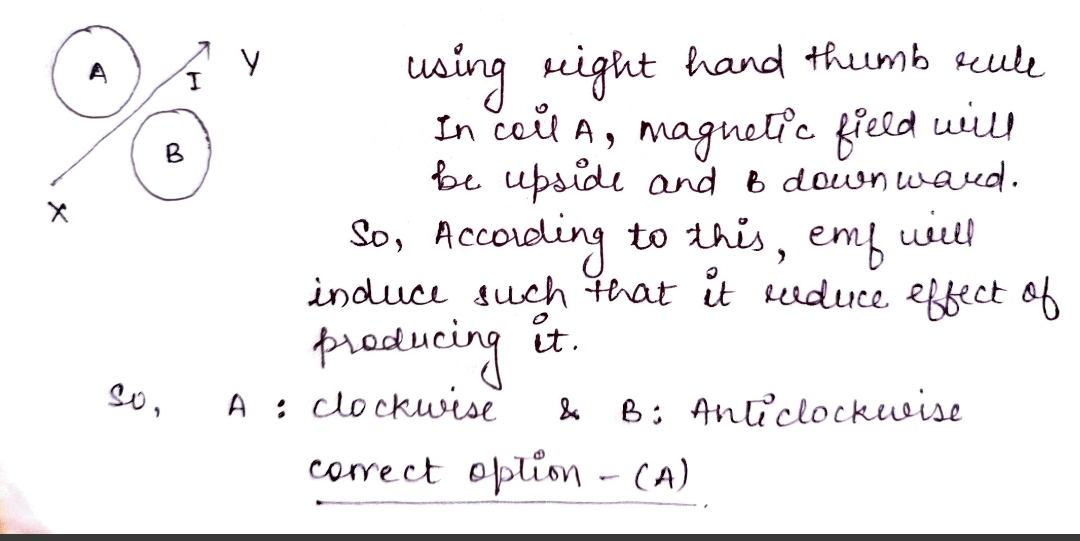 A
I
Y
B
X
using right hand thumb rule
In coil A, magnetic field will
be upside and B downward.
So, According to this, emf will
induce such that it reduce effect of
producing it.
So, A : clockwise & B: Anticlockwise
correct option - (A)